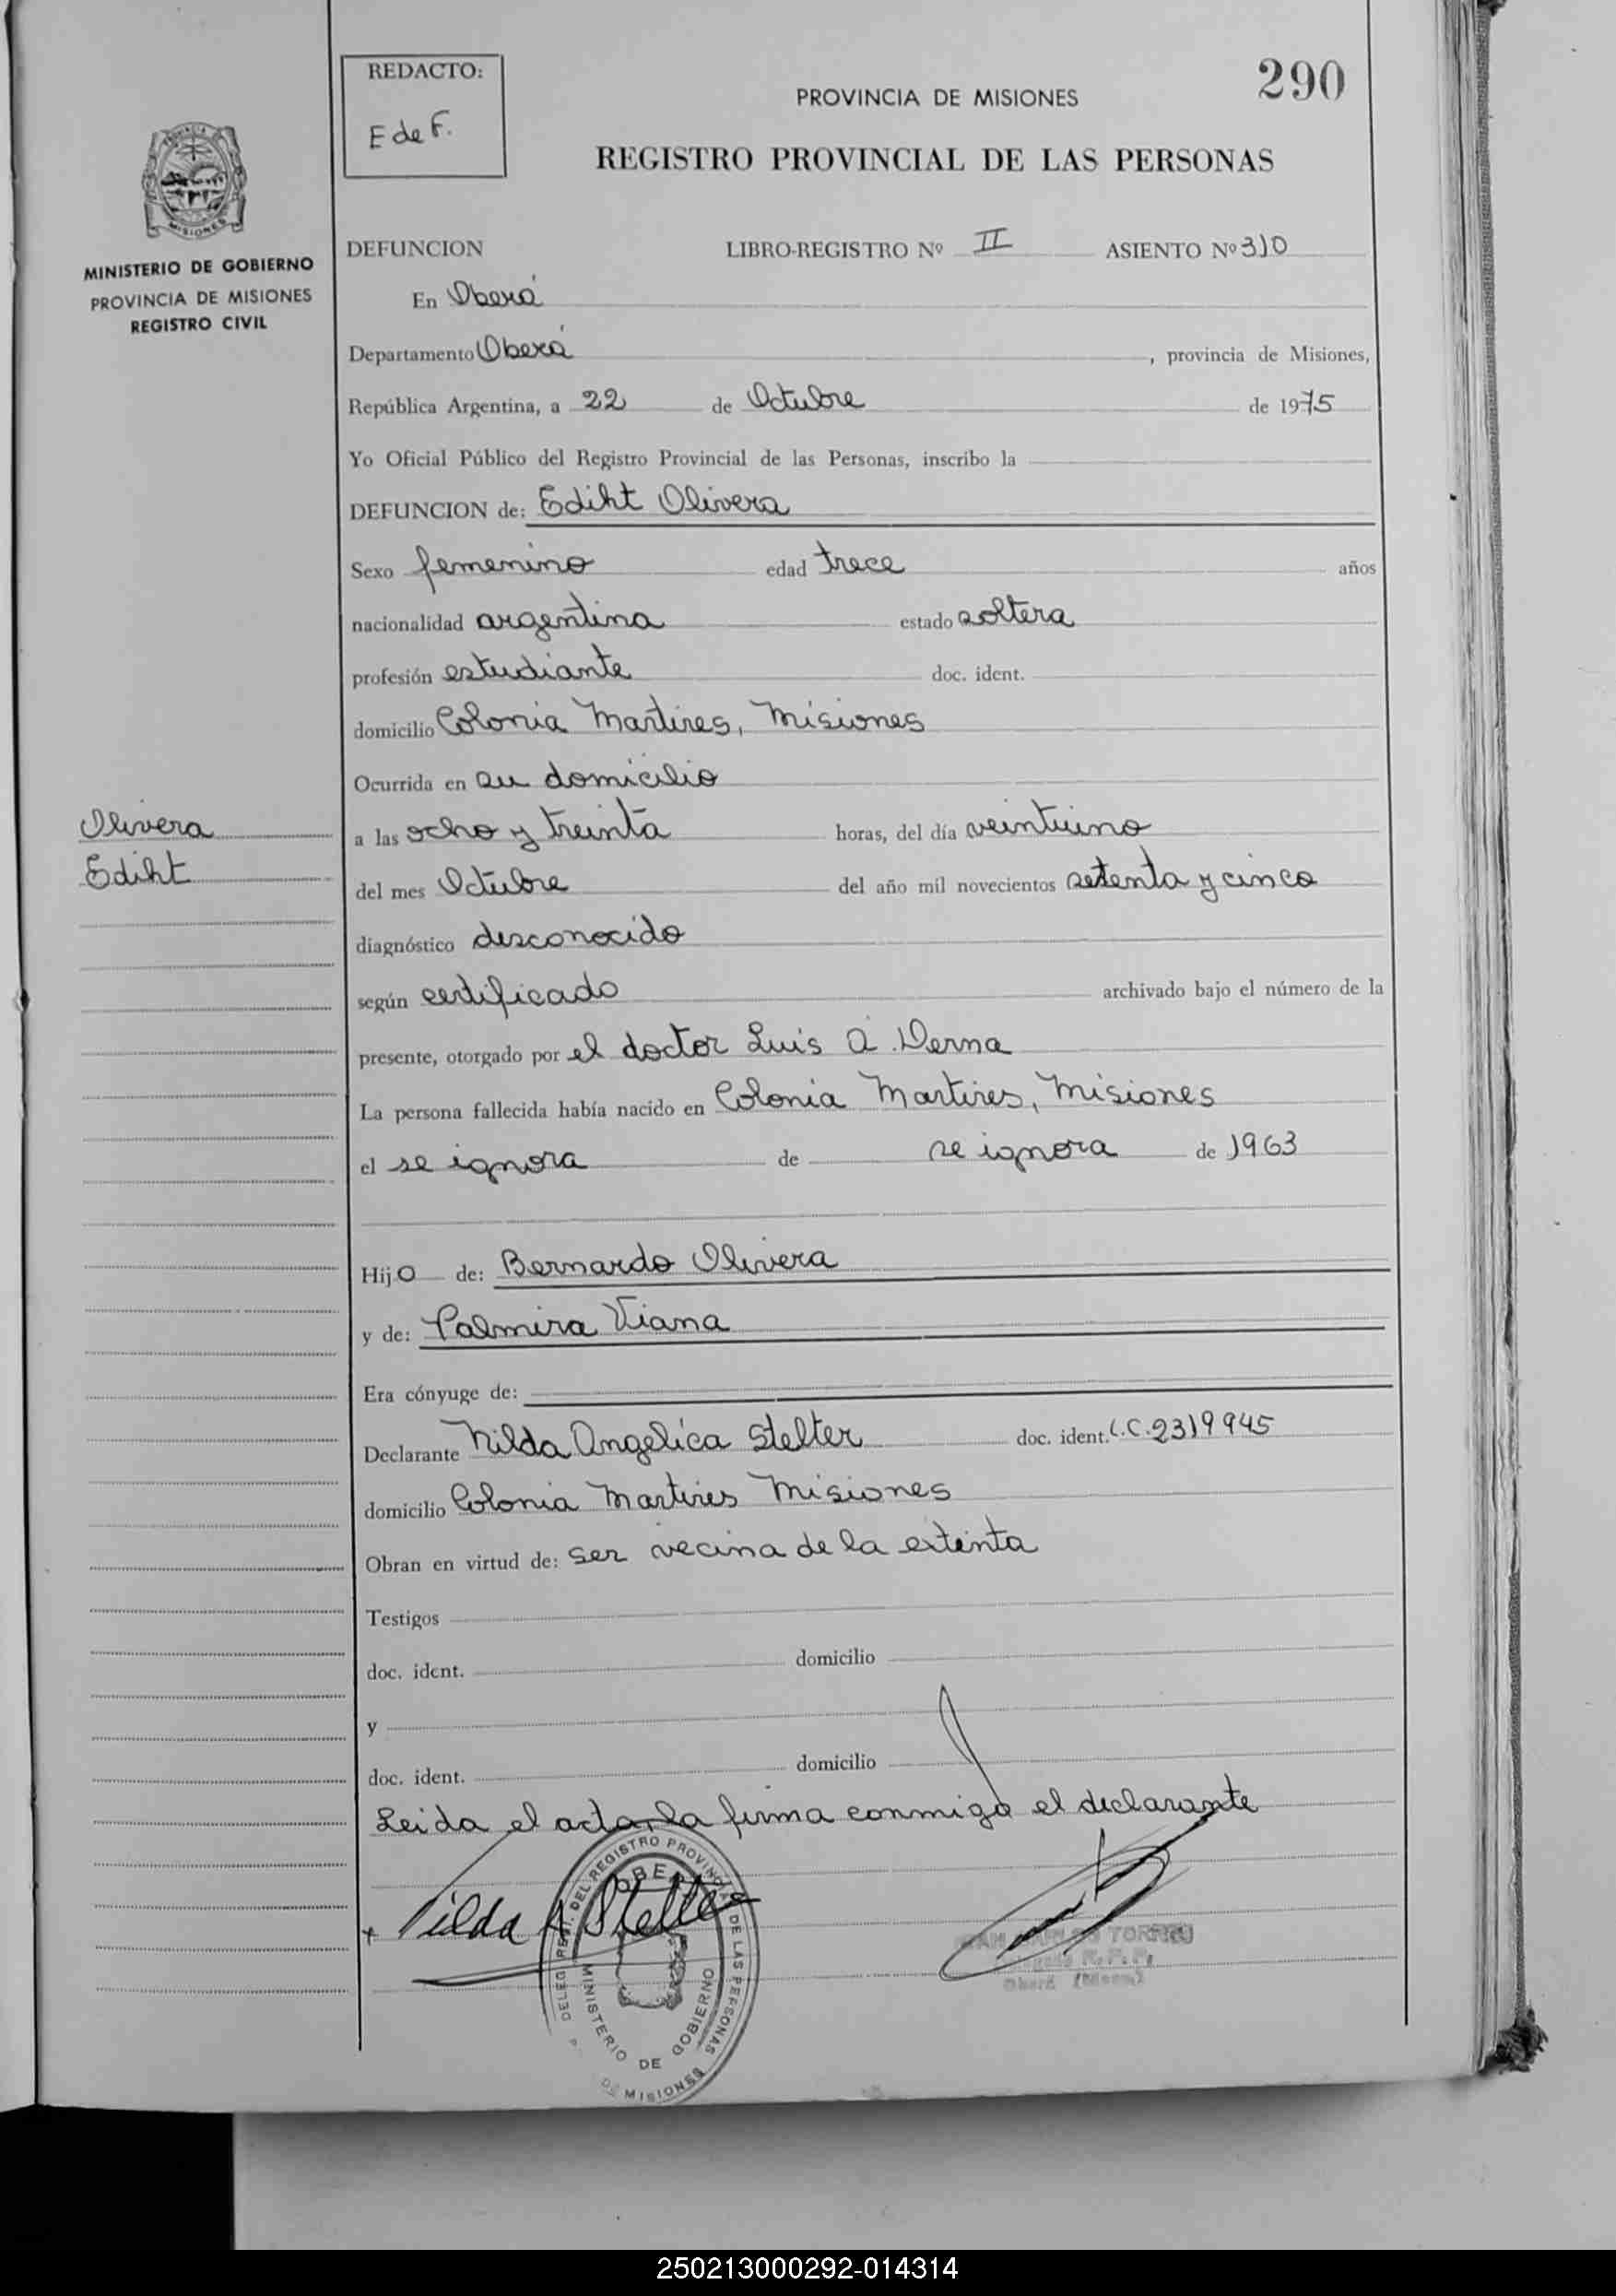 REDACTO:
E de F.
290
PROVINCIA DE MISIONES
REGISTRO PROVINCIAL DE LAS PERSONAS
MISIONES
MINISTERIO DE GOBIERNO
PROVINCIA DE MISIONES
REGISTRO CIVIL
DEFUNCION LIBRO-REGISTRO Nº II ASIENTO Nº 310
En Oberá
Departamento Oberá, provincia de Misiones,
República Argentina, a 22 de Octubre de 1975
Yo Oficial Público del Registro Provincial de las Personas, inscribo la
DEFUNCION de: Ediht Olivera
Sexo femenino edad trece años
nacionalidad argentina estado soltera
profesión estudiante doc. ident.
domicilio Colonia Martires, Misiones
Ocurrida en su domicilio
Olivera
Ediht
a las ocho y treinta horas, del día veintiuno
del mes Octubre del año mil novecientos setenta y cinco
diagnóstico desconocido
según certificado archivado bajo el número de la
presente, otorgado por el doctor Luis A. Derna
La persona fallecida había nacido en Colonia Martires, Misiones
el se ignora de se ignora de 1963
Hijo de: Bernardo Olivera
y de: Palmira Viana
Era cónyuge de:
Declarante Nilda Angelica Stelter doc. ident. L.C. 2319945
domicilio Colonia Martires Misiones
Obran en virtud de: ser vecina de la extinta
Testigos
doc. ident. domicilio
y
doc. ident. domicilio
Leida el acta, la firma conmigo el declarante
Nilda A Stelter
DEL REGISTRO PROVINCIAL DE LAS PERSONAS
MINISTERIO DE GOBIERNO
MISIONES
TORRES
Oberá
250213000292-014314